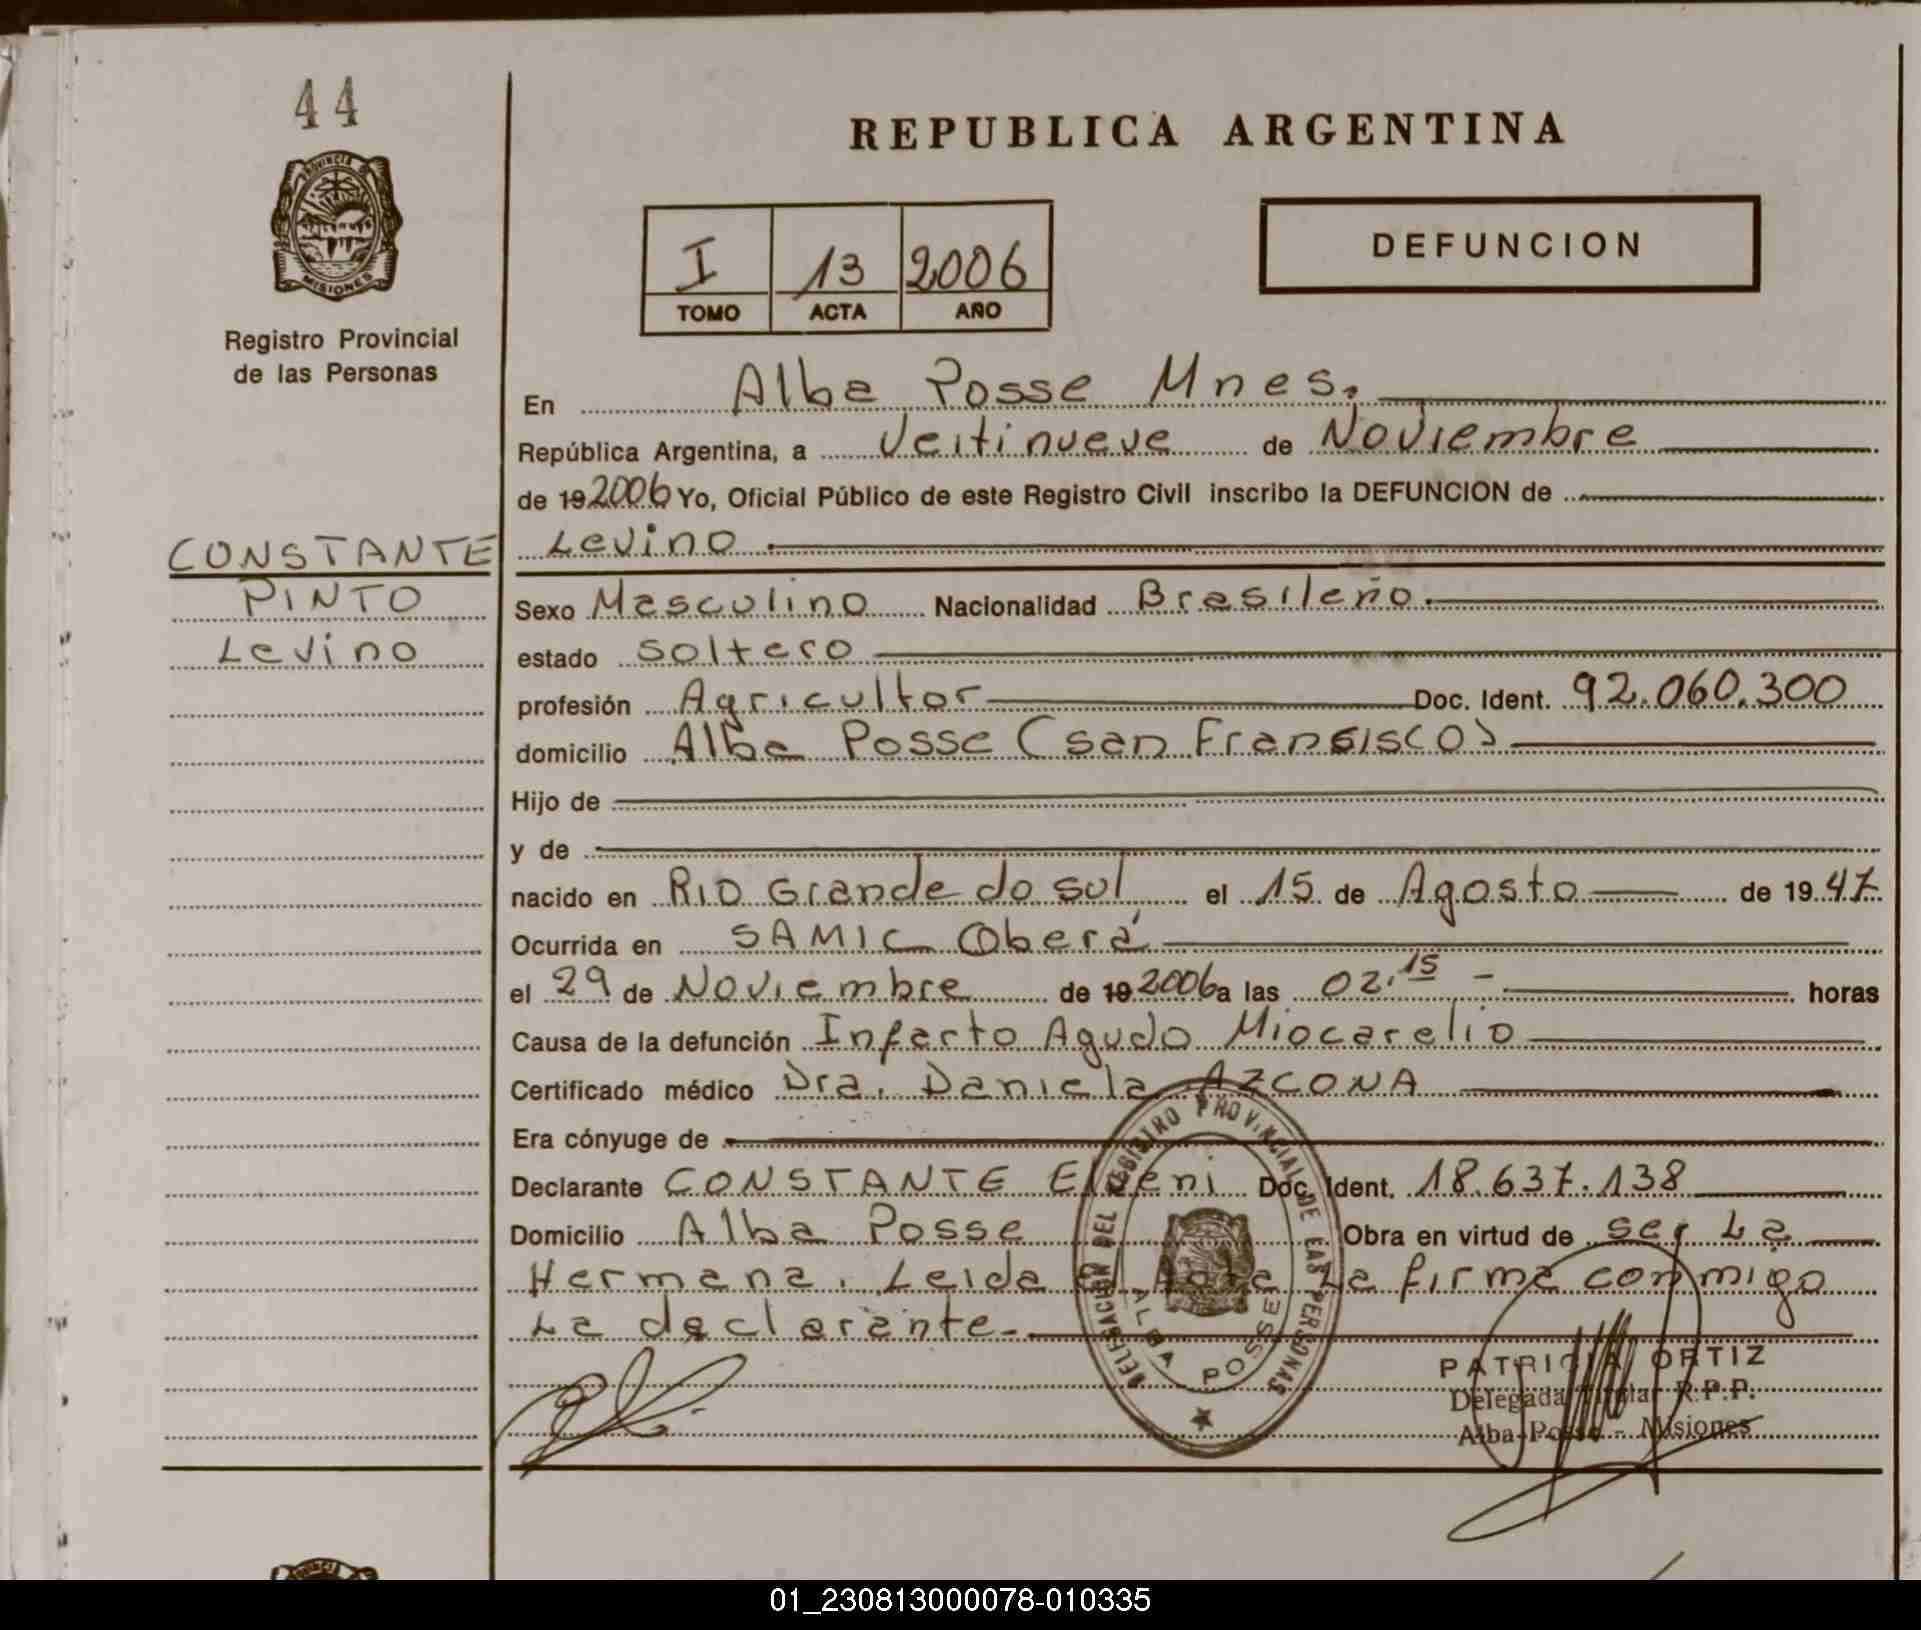 44
PROVINCIA DE
MISIONES
Registro Provincial
de las Personas
CONSTANTE
PINTO
Levino
REPUBLICA ARGENTINA
I 13 2006
TOMO ACTA AÑO
DEFUNCION
En Alba Posse Mnes.
República Argentina, a Veitinueve de Noviembre
de 192006 Yo, Oficial Público de este Registro Civil inscribo la DEFUNCION de
Levino
Sexo Masculino Nacionalidad Brasileño.
estado soltero
profesión Agricultor Doc. Ident. 92.060.300
domicilio Alba Posse (san Fransisco)
Hijo de
y de
nacido en Rio Grande do sul el 15 de Agosto de 1947
Ocurrida en SAMIC Oberá
el 29 de Noviembre de 192006 a las 02.15 - horas
Causa de la defunción Infarto Agudo Miocarelio
Certificado médico Dra. Daniela AZCONA
Era cónyuge de
Declarante CONSTANTE Doc. Ident. 18.637.138
Domicilio Alba Posse Obra en virtud de ser La
Hermana. Leida el Acta La firma conmigo
La declarante-
DELEGACION DEL REGISTRO PROVINCIAL DE LAS PERSONAS
ALBA POSSE
PATRICIA ORTIZ
Delegada Titular R.P.P.
Alba Posse - Misiones
01_230813000078-010335